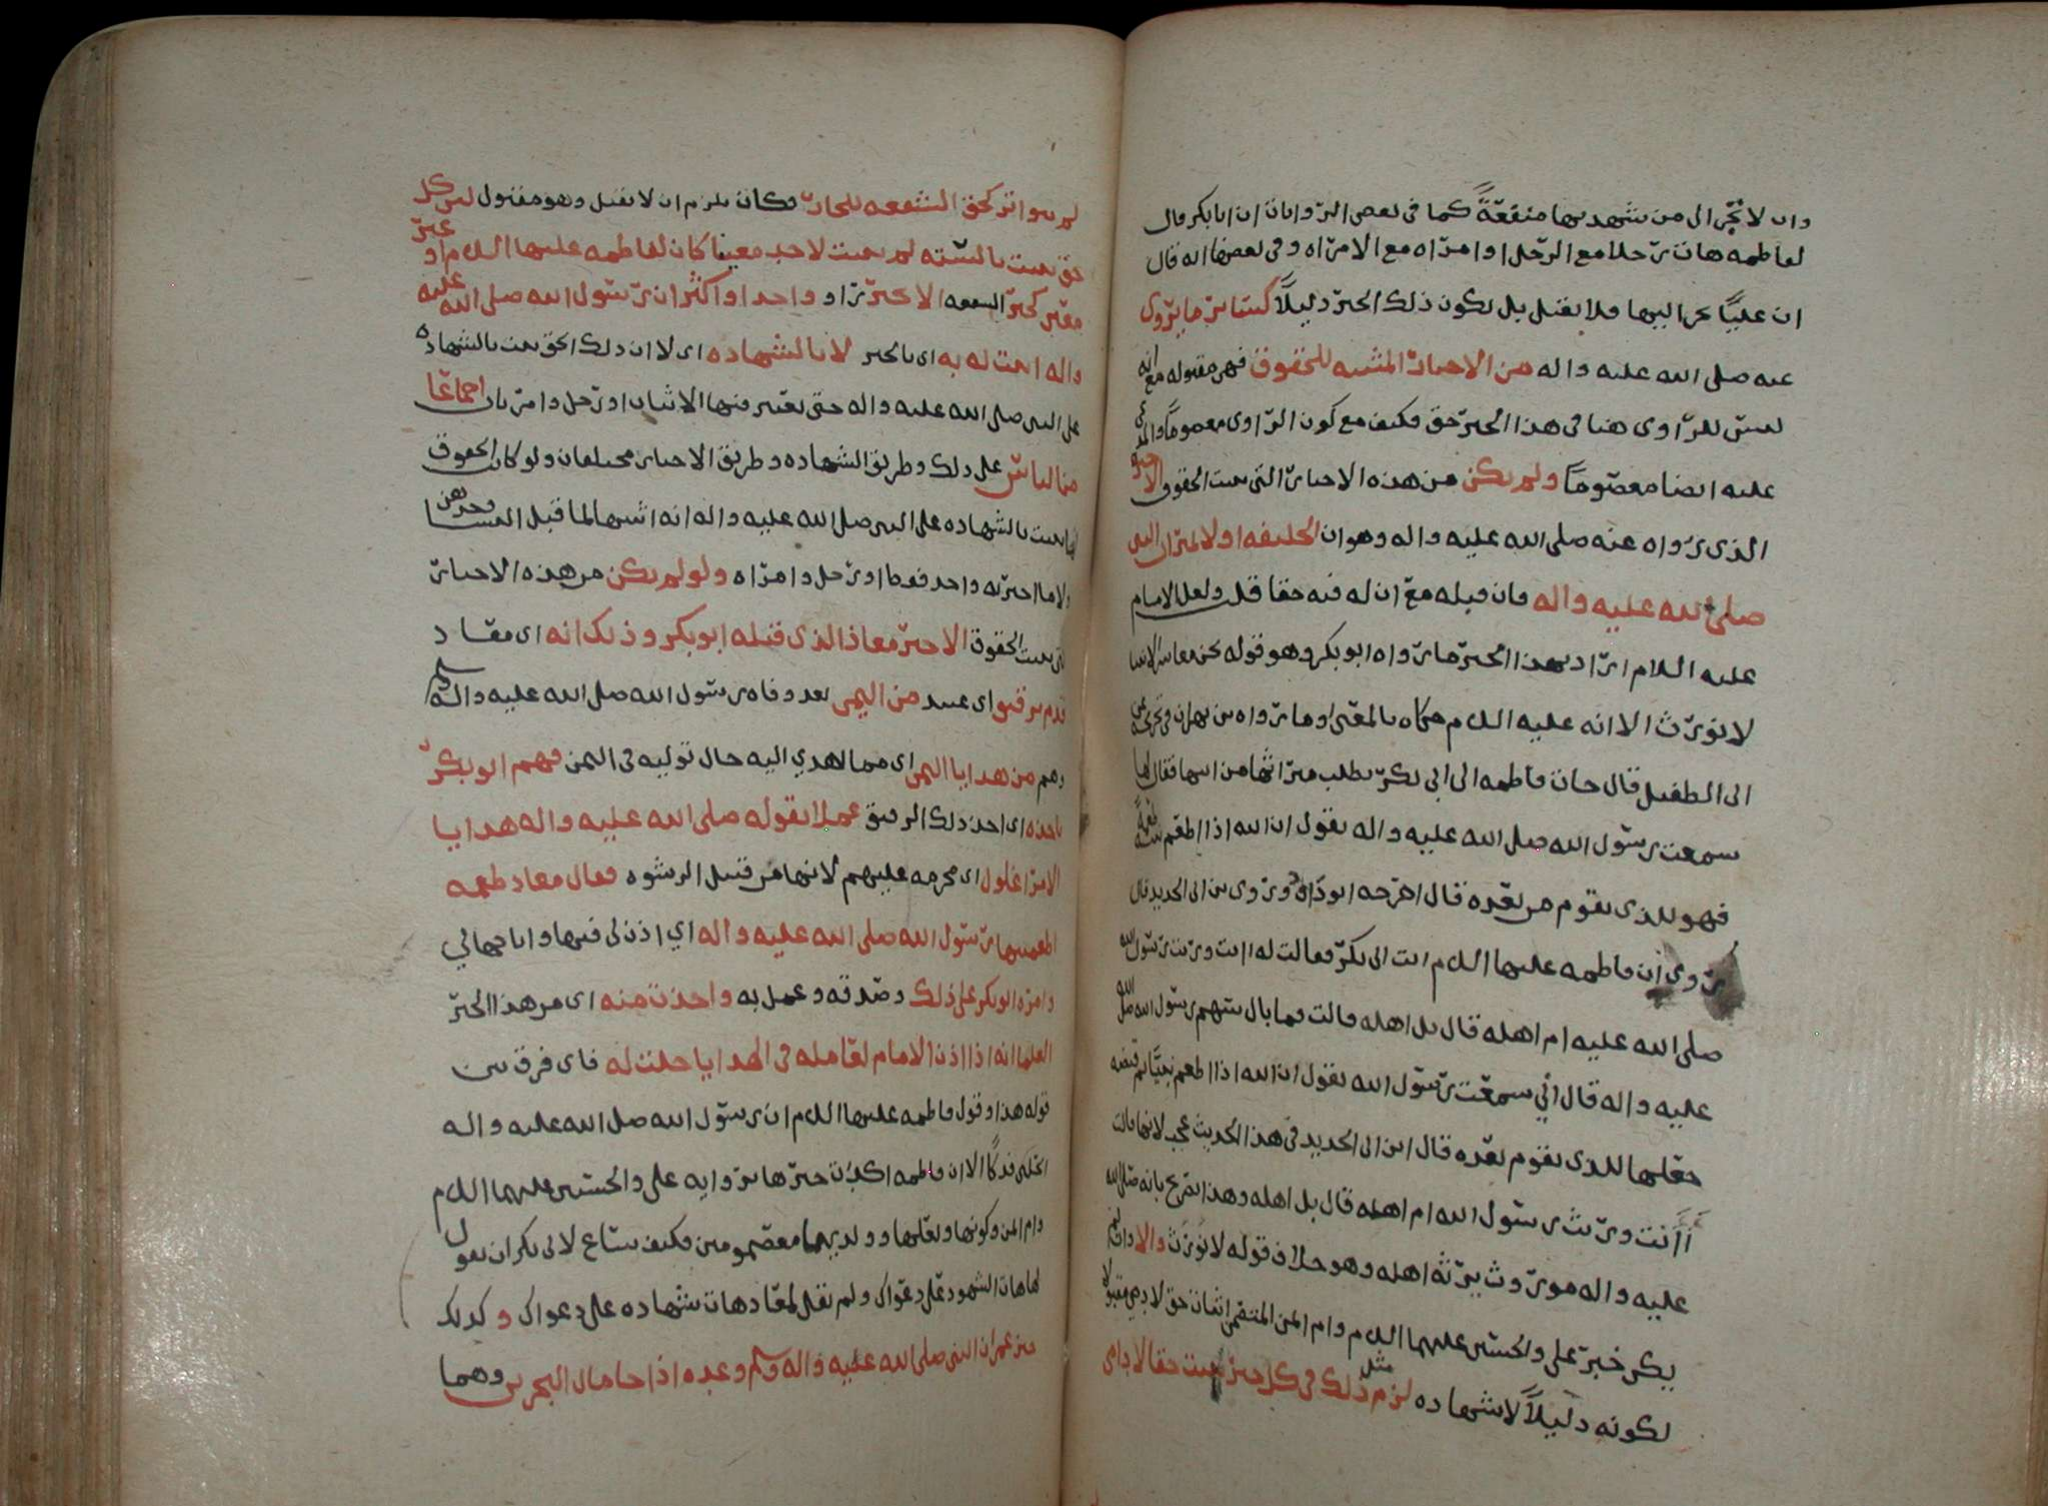 وان لا تجر الى من شهد بها منفعة كما في بعض الروايات ان ابا بكر قال
لفاطمه هات رجلا مع الرجل او امراه مع الامراه وفي بعضها انه قال
ان عليا يجر اليها فلا يقبل بل يكون ذلك الخبر دليلاً كسائر ما يروى
عنه صلى الله عليه واله من الاخبار المثبته للحقوق فهي مقبوله مع انه
ليس للراوى هنا في هذا الخبر حق فكيف مع كون الراوى معصوما والمدعى
عليه ايضا معصوما ولم يكن من هذه الاخبار التي تثبت الحقوق الا خبر
الذى رواه عنه صلى الله عليه واله وهو ان الخليفه اولا لميراث النبي
صلى الله عليه واله فان قبله مع ان له فيه حقا قلت ولعل الامام
عليه السلام اراد بهذا الخبر ما رواه ابو بكر وهو قوله نحن معاشر الانبيا
لا نورث الا انه عليه السلام حكاه بالمعنى او ما رواه بن بهران في تخريجه عن
ابى الطفيل قال جات فاطمه الى ابى بكر تطلب ميراثها من ابيها فقال لها
سمعت رسول الله صلى الله عليه واله يقول ان الله اذا اطعم نبيه طعمة
فهو للذى يقوم من بعده قال اخرجه ابو داود وروى بن ابى الحديد قال
روى ان فاطمه عليها السلام اتت ابى بكر فقالت له اانت ورثت رسول الله
صلى الله عليه ام اهله قال بل اهله قالت فما بال سهم رسول الله صلى الله
عليه واله قال اني سمعت رسول الله يقول ان الله اذا اطعم نبيا ثم قبضه
جعلها للذى يقوم بعده قال ابن ابى الحديد في هذا الحديث عجب لانها قالت
أأنت ورثت رسول الله ام اهله قال بل اهله وهذا تصريح بانه صلى الله
عليه واله موروث يرثه اهله وهو خلاف قوله لا نورث والا وان لم
يكن خبر على والحسنين عليهما السلام وام ايمن المتضمن اثبات حق لادمي مقبولا
لكونه دليلاً لا شهاده لزم مثل ذلك في كل خبر يثبت حقا لادمى
لم يتواتر كحق الشفعه للجار فكان يلزم ان لا تقبل وهو مقبول لمن كل
حق يثبت بالسنه لم يثبت لاحد معينا كان لفاطمه عليها السلام او غير
معين كخبر الشفعه الا بخبر راو واحد او اكثر ان رسول الله صلى الله عليه
واله اثبت له به اى بالخبر لا بالشهاده اى لا ان ذلك الحق يثبت بالشهاده
على النبى صلى الله عليه واله حتى يعتبر فيها الاثنان او رجل وامراتان اجماعا
من الناس على ذلك وطريق الشهاده وطريق الاخبار مختلفان ولو كان الحقوق
انما تثبت بالشهاده على النبى صلى الله عليه واله انه اثبتها لما قبل النسا وحدهن
ولا ما اخبر به واحد فقط او رجل وامراه ولو لم يكن من هذه الاخبار
التى تثبت الحقوق الا خبر معاذ الذى قبله ابو بكر وذلك انه اى معاذ
قدم برقيق اى عبيد من اليمن بعد وفاه رسول الله صلى الله عليه واله وسلم
وهم من هدايا اليمن اى مما اهدي اليه حال توليه في اليمن فهم ابو بكر
باخذه اى اخذ ذلك الرقيق عملا بقوله صلى الله عليه واله هدايا
الامرا غلول اى محرمه عليهم لانها من قبيل الرشوه فقال معاذ طعمه
اطعمنيها رسول الله صلى الله عليه واله اي اذن لى فيها واباحها لي
وامره ابو بكر على ذلك وصدقه وعمل به واخذت منه اى من هذا الخبر
العلما انه اذا اذن الامام لعامله في الهدايا حلت له فاى فرق بين
قوله هذا وقول فاطمه عليها السلام ان رسول الله صلى الله عليه واله
انحلنى فدكا الا ان فاطمه اكدت خبرها بروايه على والحسنين عليهما السلام
وام ايمن وكونها وبعلها وولديهما معصومين فكيف ساغ لابى بكر ان يقول
لها هات الشهود على دعواك ولم يقل لمعاذ هات شهاده على دعواك وكذلك
خبر عمر ان النبى صلى الله عليه واله وسلم وعده اذا جا مال البحرين وهما